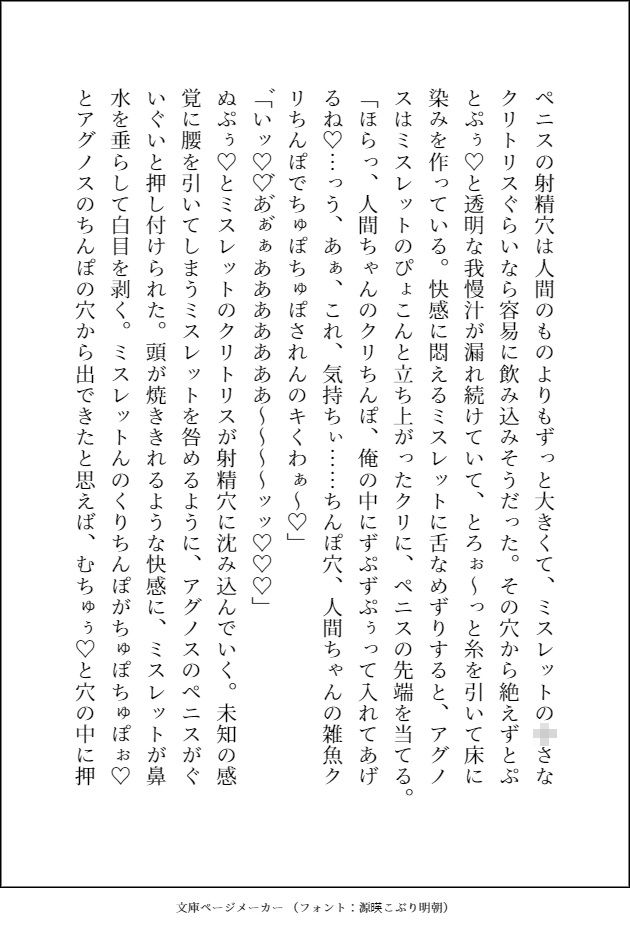 ペニスの射精穴は人間のものよりもずっと大きくて、ミスレットのさな
クリトリスぐらいなら容易に飲み込みそうだった。その穴から絶えずとぷ
とぷぅ♡と透明な我慢汁が漏れ続けていて、とろぉ～っと糸を引いて床に
染みを作っている。快感に悶えるミスレットに舌なめずりすると、アグノ
スはミスレットのぴょこんと立ち上がったクリに、ペニスの先端を当てる。
「ほらっ、人間ちゃんのクリちんぽ、俺の中にずぷずぷぅって入れてあげ
るね♡…っう、あぁ、これ、気持ちぃ……ちんぽ穴、人間ちゃんの雑魚ク
リちんぽでちゅぽちゅぽされんのキくわぁ～♡」
「い゛ッ♡♡あ゛ぁ゛ぁああああああああ～～～～ッッ♡♡♡」
ぬぷぅ♡とミスレットのクリトリスが射精穴に沈み込んでいく。未知の感
覚に腰を引いてしまうミスレットを咎めるように、アグノスのペニスがぐ
いぐいと押し付けられた。頭が焼ききれるような快感に、ミスレットが鼻
水を垂らして白目を剥く。ミスレットんのくりちんぽがちゅぽちゅぽぉ♡
とアグノスのちんぽの穴から出できたと思えば、むちゅぅ♡と穴の中に押
文庫ページメーカー（フォント：源暎こぶり明朝）